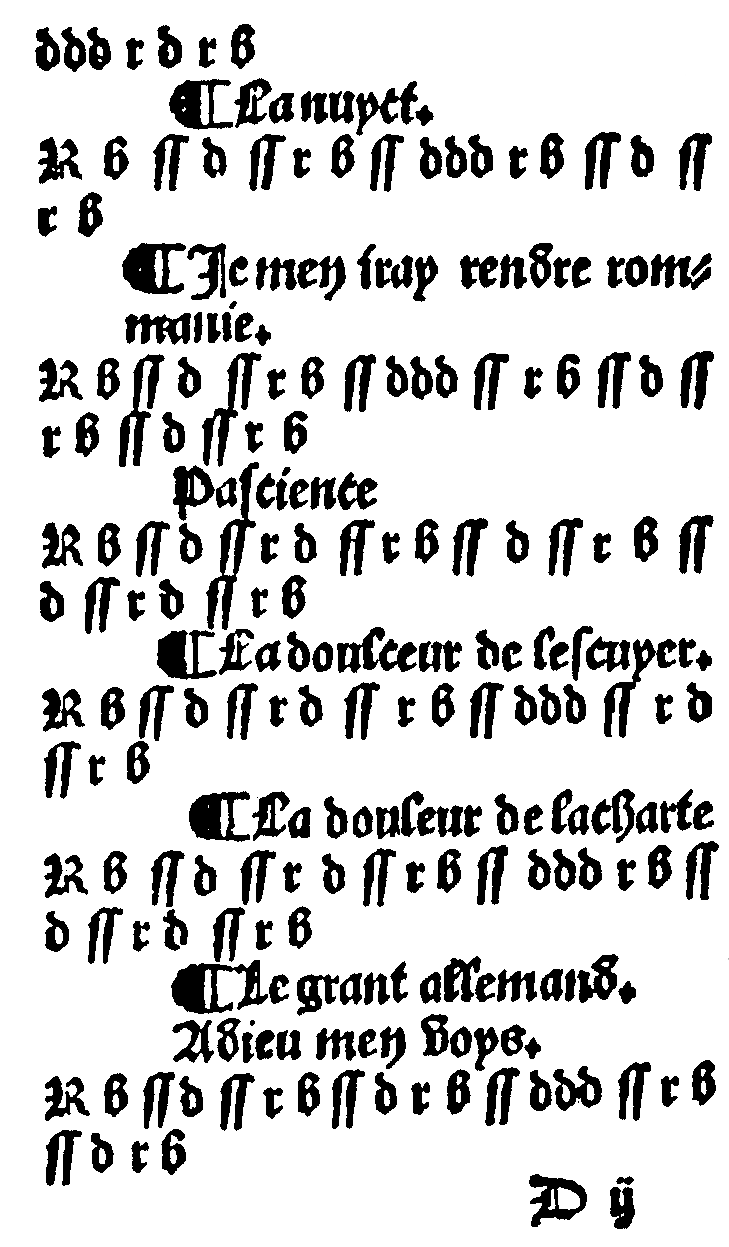 ddd r d r b
¶ La nuyct.
R b ſſ d ſſ r b ſſ ddd r b ſſ d ſſ
r b
¶ Je men iray rendre rom⸗
manie.
R b ſſ d ſſ r b ſſ ddd ſſ r b ſſ d ſſ
r b ſſ d ſſ r b
Paſciente
R b ſſ d ſſ r d ſſ r b ſſ d ſſ r b ſſ
d ſſ r d ſſ r b
¶ La douſceur de leſcuyer.
R b ſſ d ſſ r d ſſ r b ſſ ddd ſſ r d
ſſ r b
¶ La douleur de lacharte
R b ſſ d ſſ r d ſſ r b ſſ ddd r b ſſ
d ſſ r d ſſ r b
¶ Le grant allemand.
Adieu men voys.
R b ſſ d ſſ r b ſſ d r b ſſ ddd ſſ r b
ſſ d r b
D ij